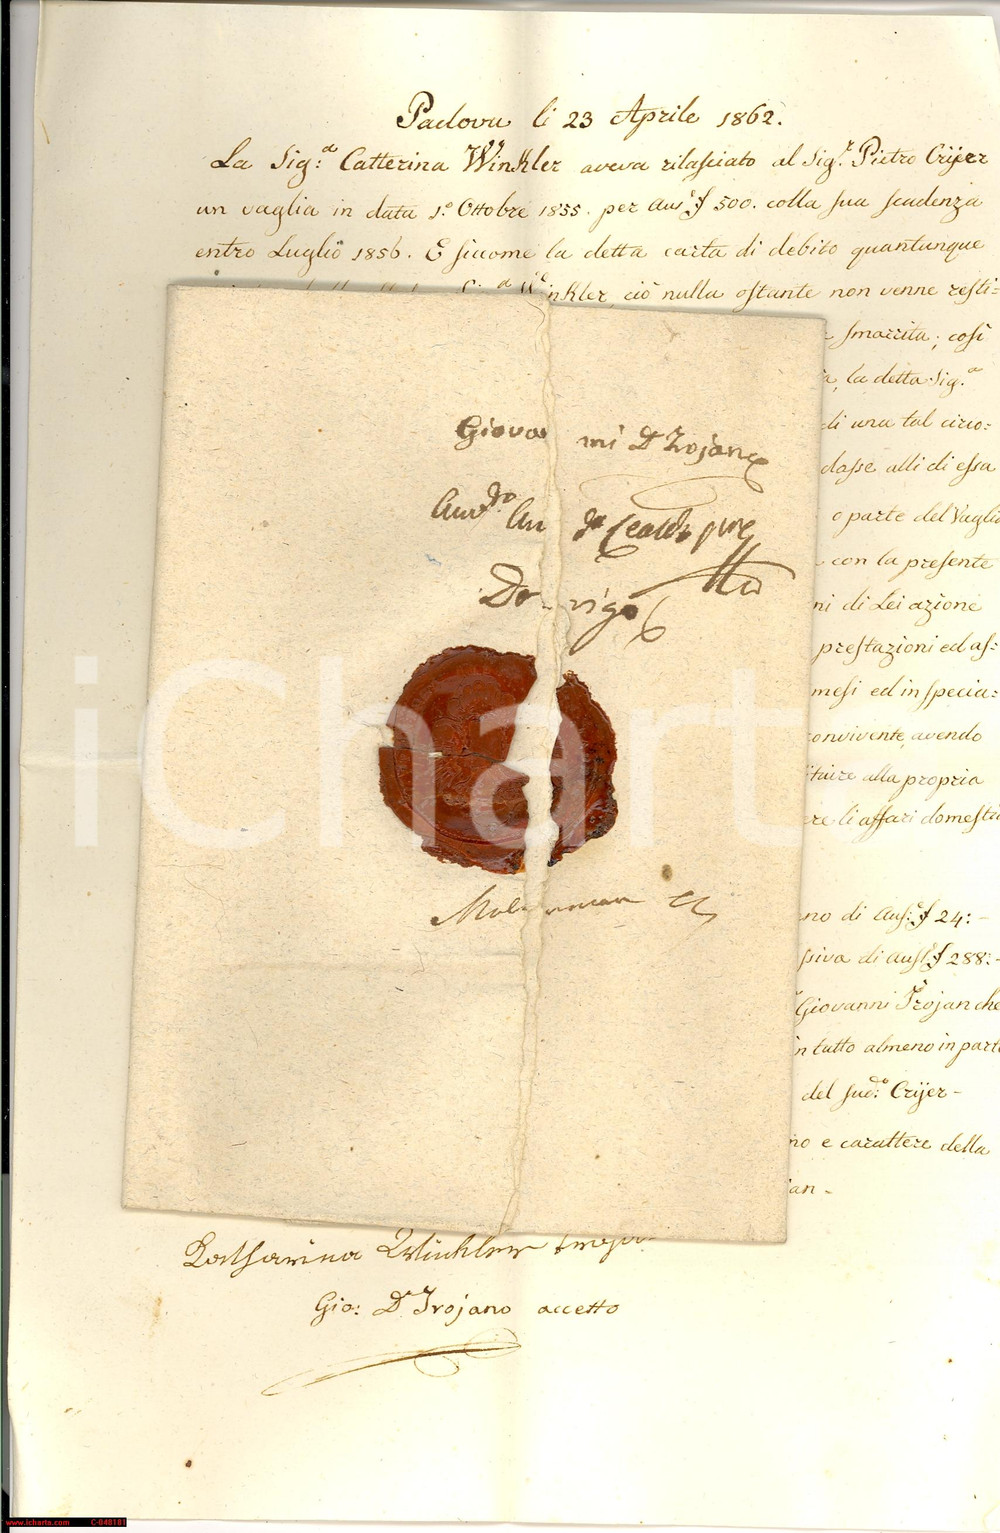 Padova li 23 Aprile 1862.
La Sig.ª Catterina Winkler aveva rilasciato al Sig.r Pietro Crijer
un vaglia in data 1.º Ottobre 1855. per Aus. £ 500. colla sua scadenza
entro Luglio 1856. E siccome la detta carta di debito quantunque
Winkler, ciò nulla ostante non venne resti=
smarrita; così
la detta Sig.ª
di una tal circo:
dasse alli di essa
o parte del Vaglia
con la presente
di Lei azione
prestazioni ed as:
mesi ed in specia:
convivente, avendo
alla propria
li affari domesti
Giovanni Dr Trojano
Rovigo
di Aus. £ 24:-
di Aus. £ 288:-
Giovanni Trojan che
in tutto almeno in parte
del sud.º Crijer -
e carattere della
Katharina Winkler
Gio: Dr. Trojano accetto
iCharta
www.icharta.com C-048181